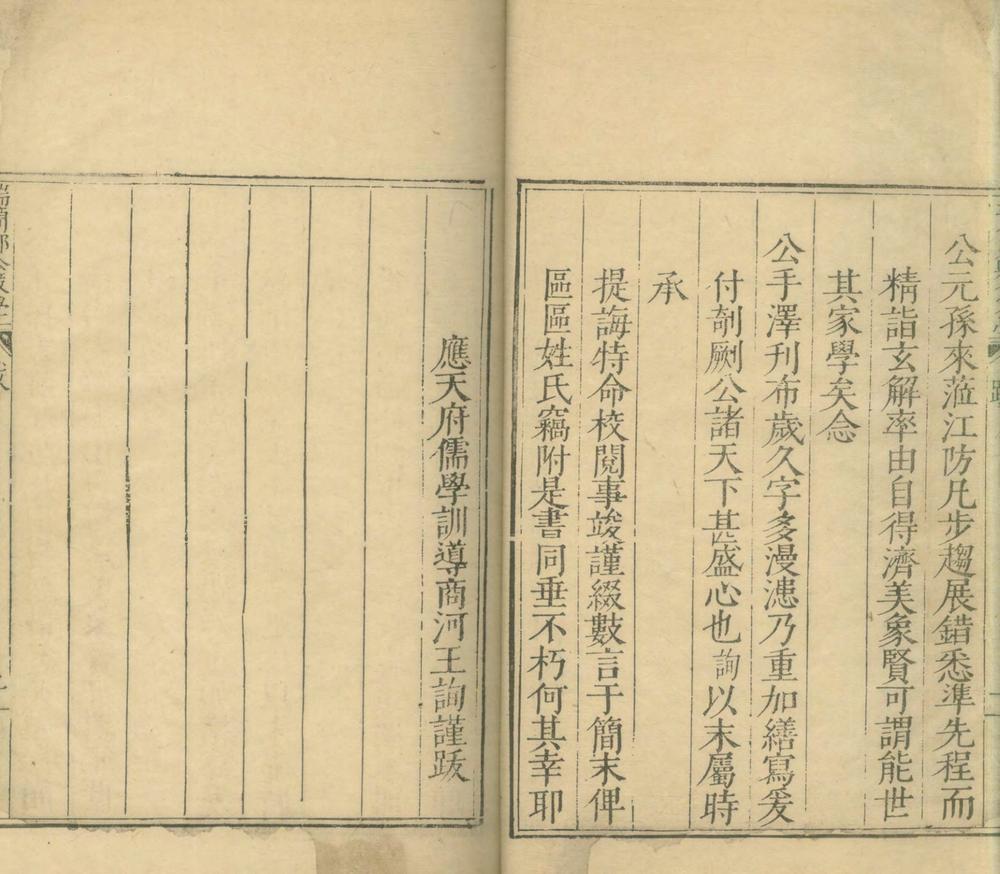 公元孫來蒞江防凡步趨展錯悉準先程而
精詣玄解率由自得濟美象賢可謂能世
其家學矣念
公手澤刊布歲久字多漫漶乃重加繕寫爰
付剞劂公諸天下甚盛心也詢以末屬時
承
提誨特命校閱事竣謹綴數言于簡末俾
區區姓氏竊附是書同垂不朽何其幸耶
應天府儒學訓導商河王詢謹跋